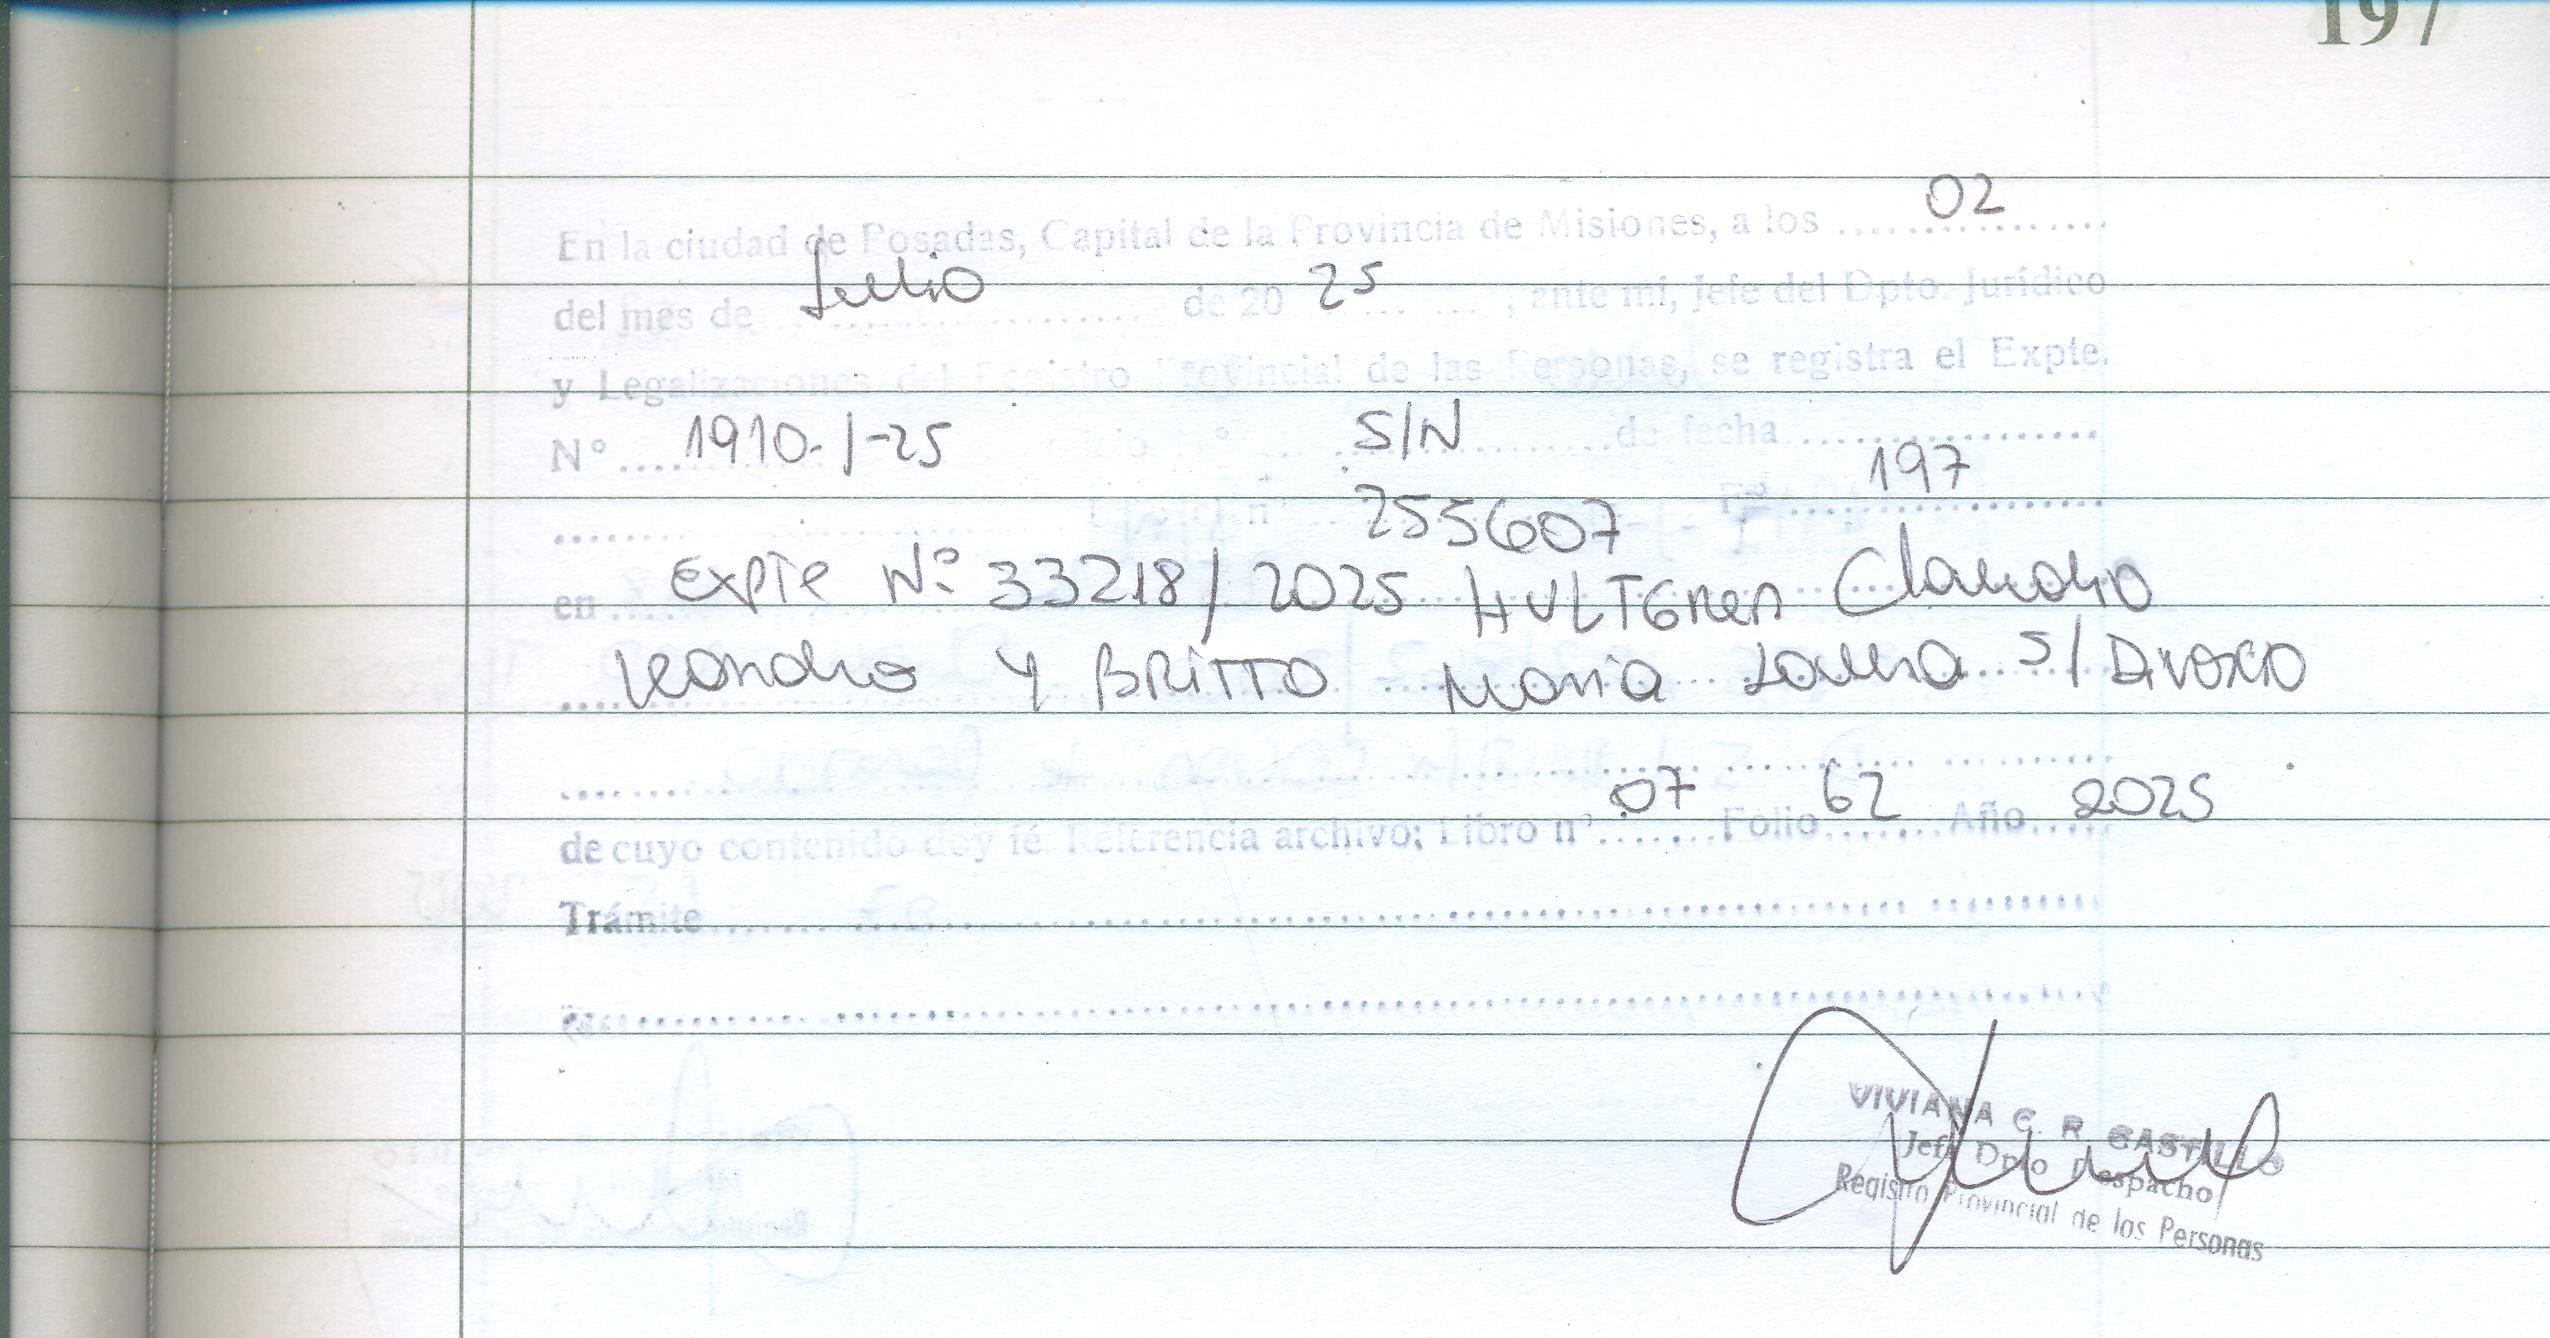 197
En la ciudad de Posadas, Capital de la Provincia de Misiones, a los 02
del mes de Julio de 20 25, ante mí, Jefe del Dpto. Jurídico
y Legalizaciones del Registro Provincial de las Personas, se registra el Expte.
N° 1910-J-25 S/N de fecha
n° 255607 F° 197
en Expte N° 33218/2025 HULTGREN Claudio
Leandro Y BRITTO Maria Laura S/ Divorcio
de cuyo contenido doy fé. Referencia archivo: Libro n° 07 Folio 62 Año 2025
Trámite
VIVIANA C. R. CASTILLO
Jefe Dpto Despacho
Registro Provincial de las Personas